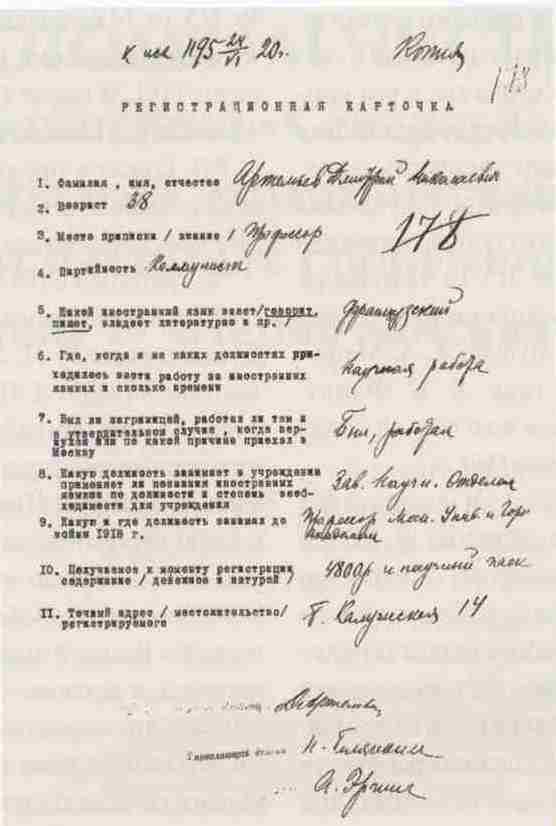 К исх 1195 24/VI 20г. Копия
113
РЕГИСТРАЦИОННАЯ КАРТОЧКА
1. Фамилия , имя, отчество Артемьев Дмитрий Николаевич
2. Возраст 38
3. Место приписки / звание / Профессор
178
4. Партийность Коммунист
5. Какой иностранный язык знает/говорит, Французский
пишет, владеет литературно и пр. /
6. Где, когда и на каких должностях при- Научная работа
ходилось вести работу на иностранных
языках и сколько времени
7. Был ли заграницей, работал ли там и Был, работал
в утвердительном случае , когда вер-
нулся или по какой причине приехал в
Москву
8. Какую должность занимает в учреждении Зав. Научн. Отделом
применяет ли познания иностранных
языков по должности и степень необ-
ходимости для учреждения
9. Какую и где должность занимал до Профессор Моск. Унив. и Горн
войны 1918 г. Академии
10. Получаемое к моменту регистрации 4800р и научный паек
содержание / денежное и натурой /
11. Точный адрес / местожительство/ Б. Калужская 14
регистрируемого
ДАртемьев
А. Эрлих